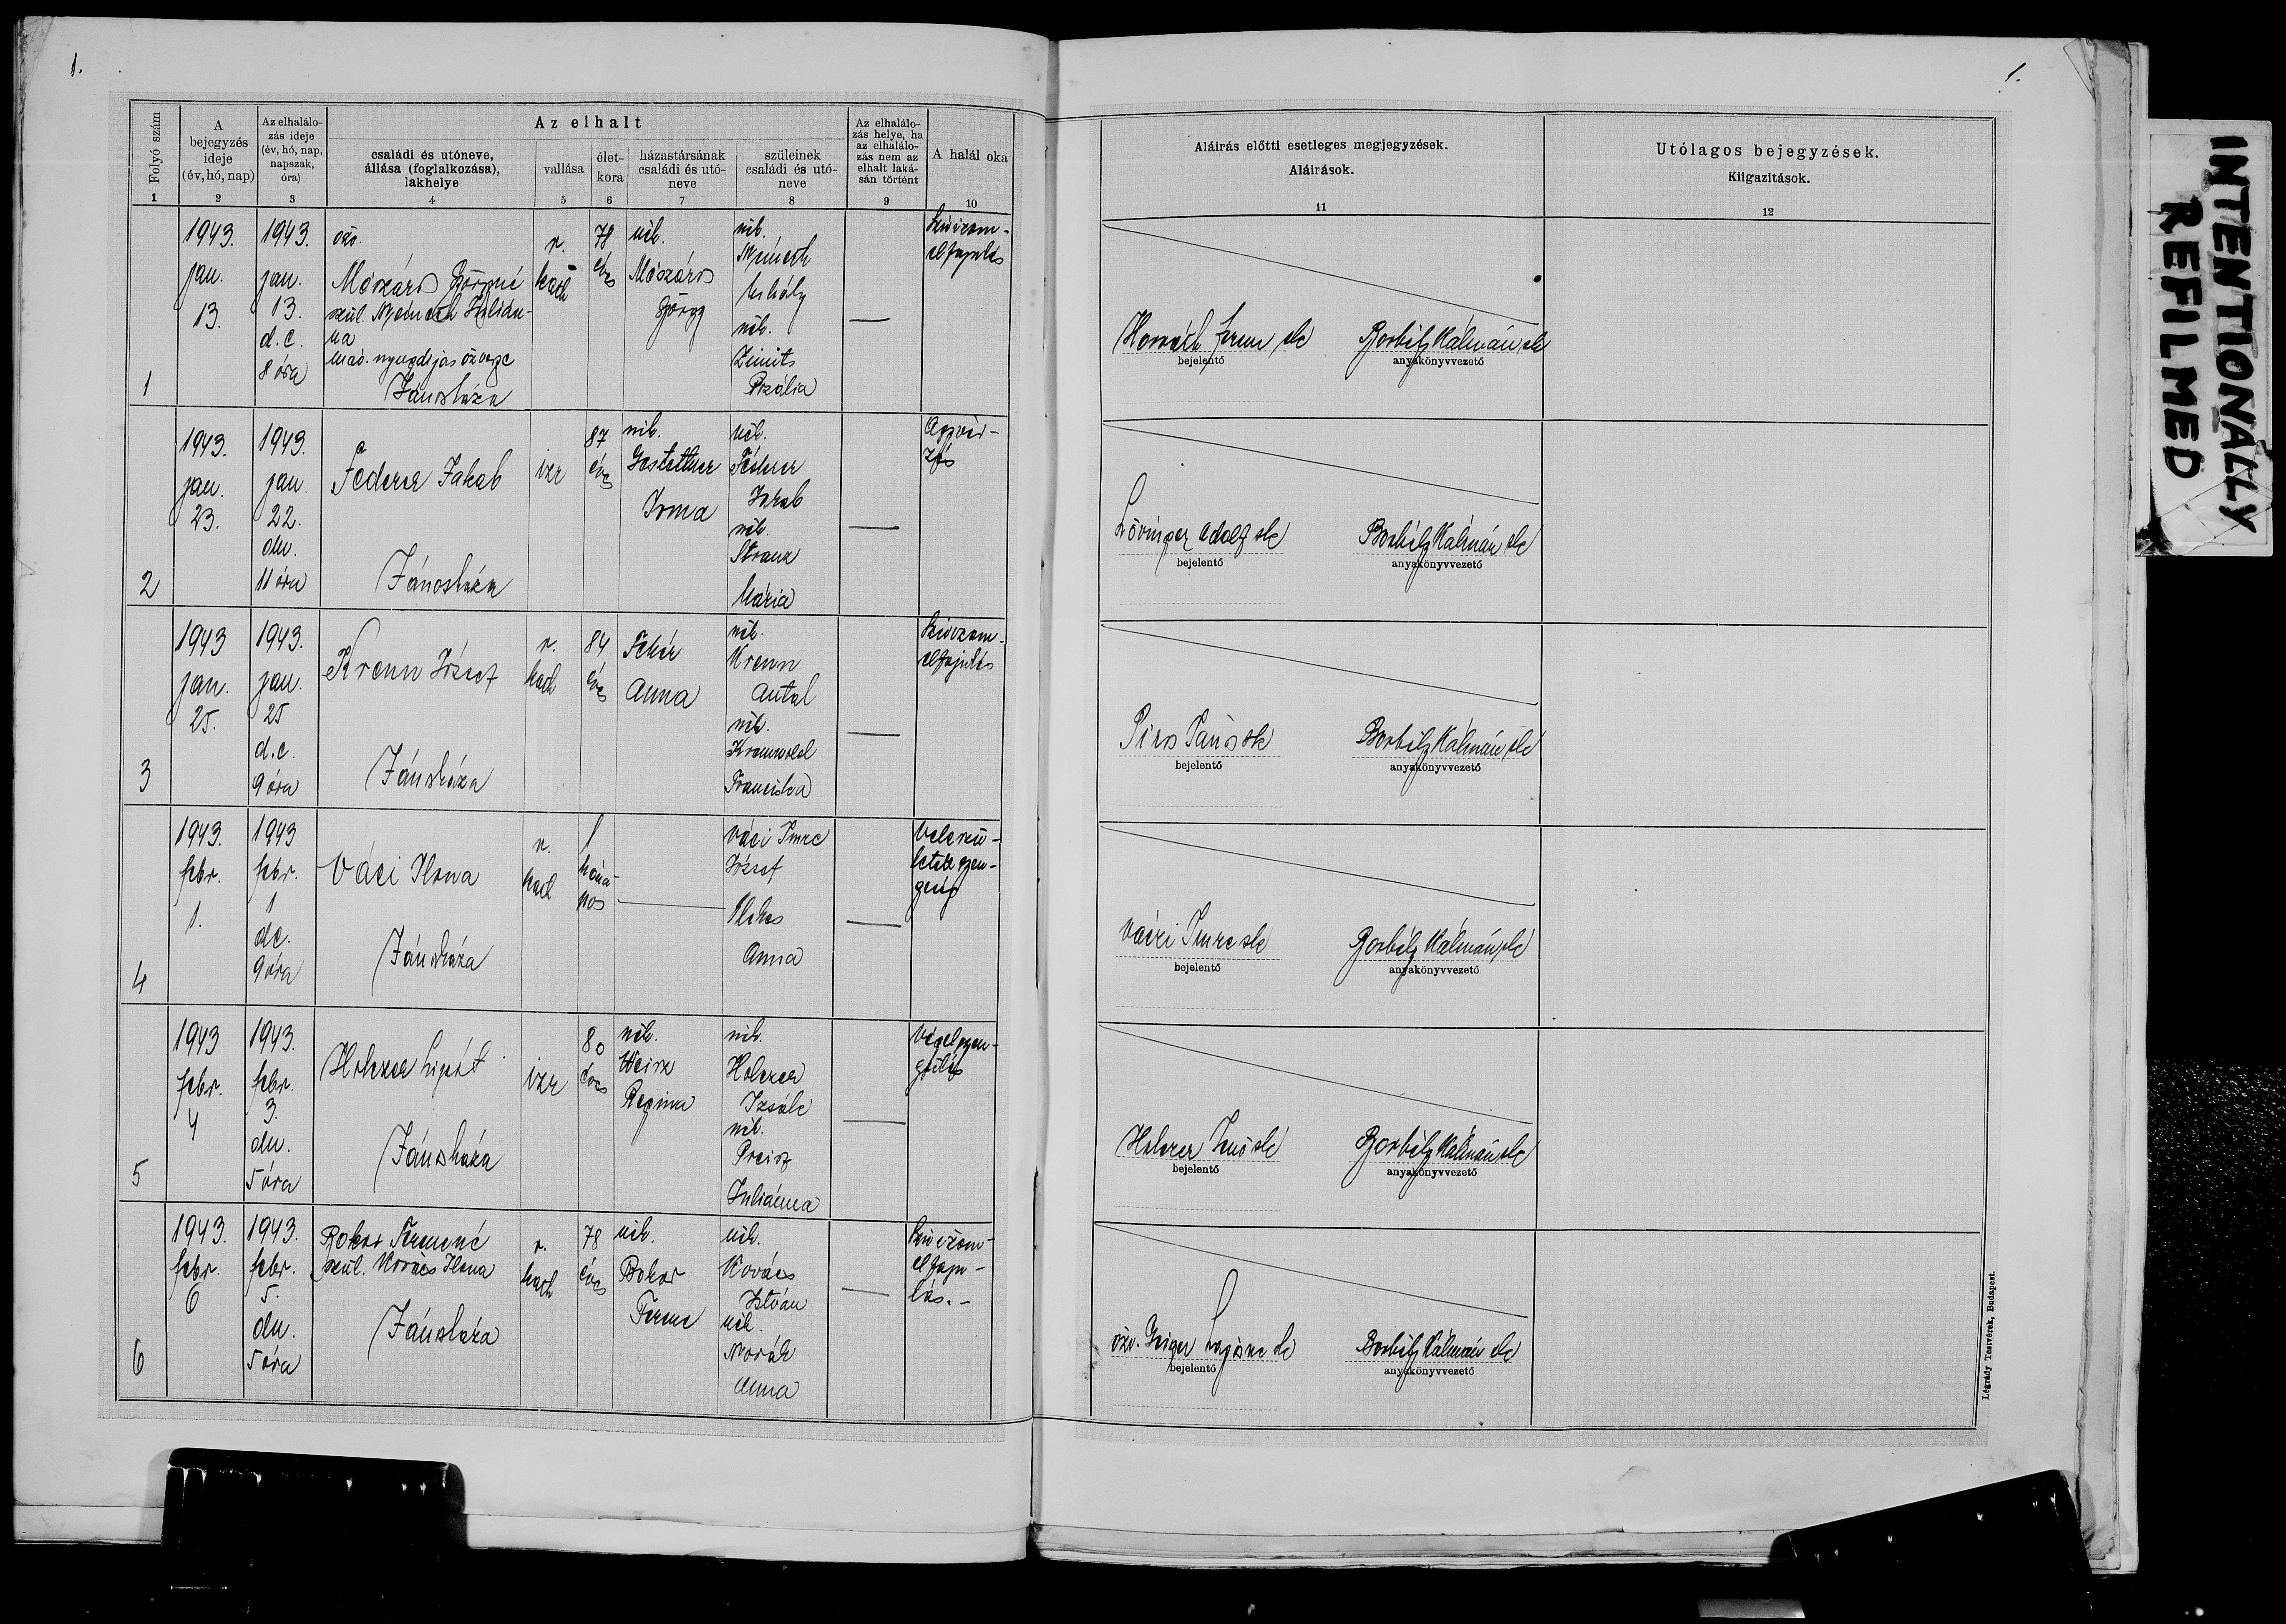 1.
1.
Folyó szám
A bejegyzés ideje (év, hó, nap)
Az elhalálozás ideje (év, hó, nap, napszak, óra)
Az elhalt
családi és utóneve, állása (foglalkozása), lakhelye
vallása
életkora
házastársának családi és utóneve
szüleinek családi és utóneve
Az elhalálozás helye, ha az elhalálozás nem az elhalt lakásán történt
A halál oka
Aláírás előtti esetleges megjegyzések.
Aláírások.
Utólagos bejegyzések.
Kiigazítások.
1 2 3 4 5 6 7 8 9 10 11 12
1
1943.
jan.
13.
1943.
jan.
13.
d.e.
8 óra
özv.
Mészáros Györgyné
szül. Németh Julián-
na
Jánosháza
r.
kath
78
éves
néh.
Mészáros
György
néh.
Németh
Mihály
néh.
Rozália
Szívizom-
elfajulás
Horváth Ferenc sk
bejelentő
Borbély Kálmán sk
anyakönyvvezető
2
1943.
jan.
23.
1943.
jan
22.
du.
11 óra
Federer Jakab
Jánosháza
izr
87
éves
néh.
Gostettner
Irma
néh.
Jakab
néh.
Mária
Agyvér-
zés
Lövinger Adolf sk
bejelentő
Borbély Kálmán sk
anyakönyvvezető
3
1943
jan.
25.
1943.
jan.
25
d.e
9 óra
Krenn József
Jánosháza
r.
kath
84
éves
Fehér
Anna
néh.
Krenn
Antal
néh.
Franciska
Szívizom-
elfajulás
Piros János sk
bejelentő
Borbély Kálmán sk
anyakönyvvezető
4
1943.
febr.
1.
1943
febr.
1
de.
9 óra
Váci Ilona
Jánosháza
r.
kath
1
hóna-
pos
Váci Imre
József
Anna
Veleszü-
letett gyen-
geség
Váczi Imre sk
bejelentő
Borbély Kálmán sk
anyakönyvvezető
5
1943
febr.
4
1943.
febr.
3.
du.
5 óra
Holczer Lipót
Jánosháza
izr
80
éves
néh.
Weisz
Regina
néh.
Holczer
Izsák
néh.
Preisz
Juliánna
Végelgyen-
gülés
Holczer Jenő sk
bejelentő
Borbély Kálmán sk
anyakönyvvezető
6
1943.
febr.
6
1943.
febr.
5.
du.
5 óra
Bokor Ferencné
szül. Kovács Ilona
Jánosháza
r.
kath
78
éves
néh.
Bokor
Ferenc
néh.
Kovács
István
néh.
Novák
Anna
Szívizom-
elfaju-
lás.-
özv. Geiger Lajosné sk
bejelentő
Borbély Kálmán sk
anyakönyvvezető
Légrády Testvérek, Budapest.
INTENTIONALLY
REFILMED